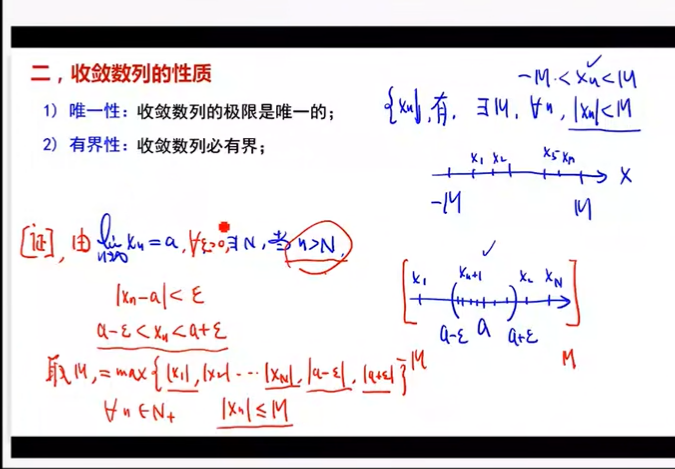 二，收敛数列的性质
1) 唯一性：收敛数列的极限是唯一的；
2) 有界性：收敛数列必有界；
-M<xn<M
{xn}，有，∃M，∀n，|xn|<M
x1 x2 x5 xn
-M M X
[证]，由 lim n→∞ xn=a，∀ε>0，∃N，当 n>N，
|xn-a|<ε
a-ε<xn<a+ε
取M，=max{|x1|,|x2|…|xN|,|a-ε|,|a+ε|}
∀n∈N+ |xn|≤M
x1 xN+1 x2 xN
a-ε a a+ε
-M M